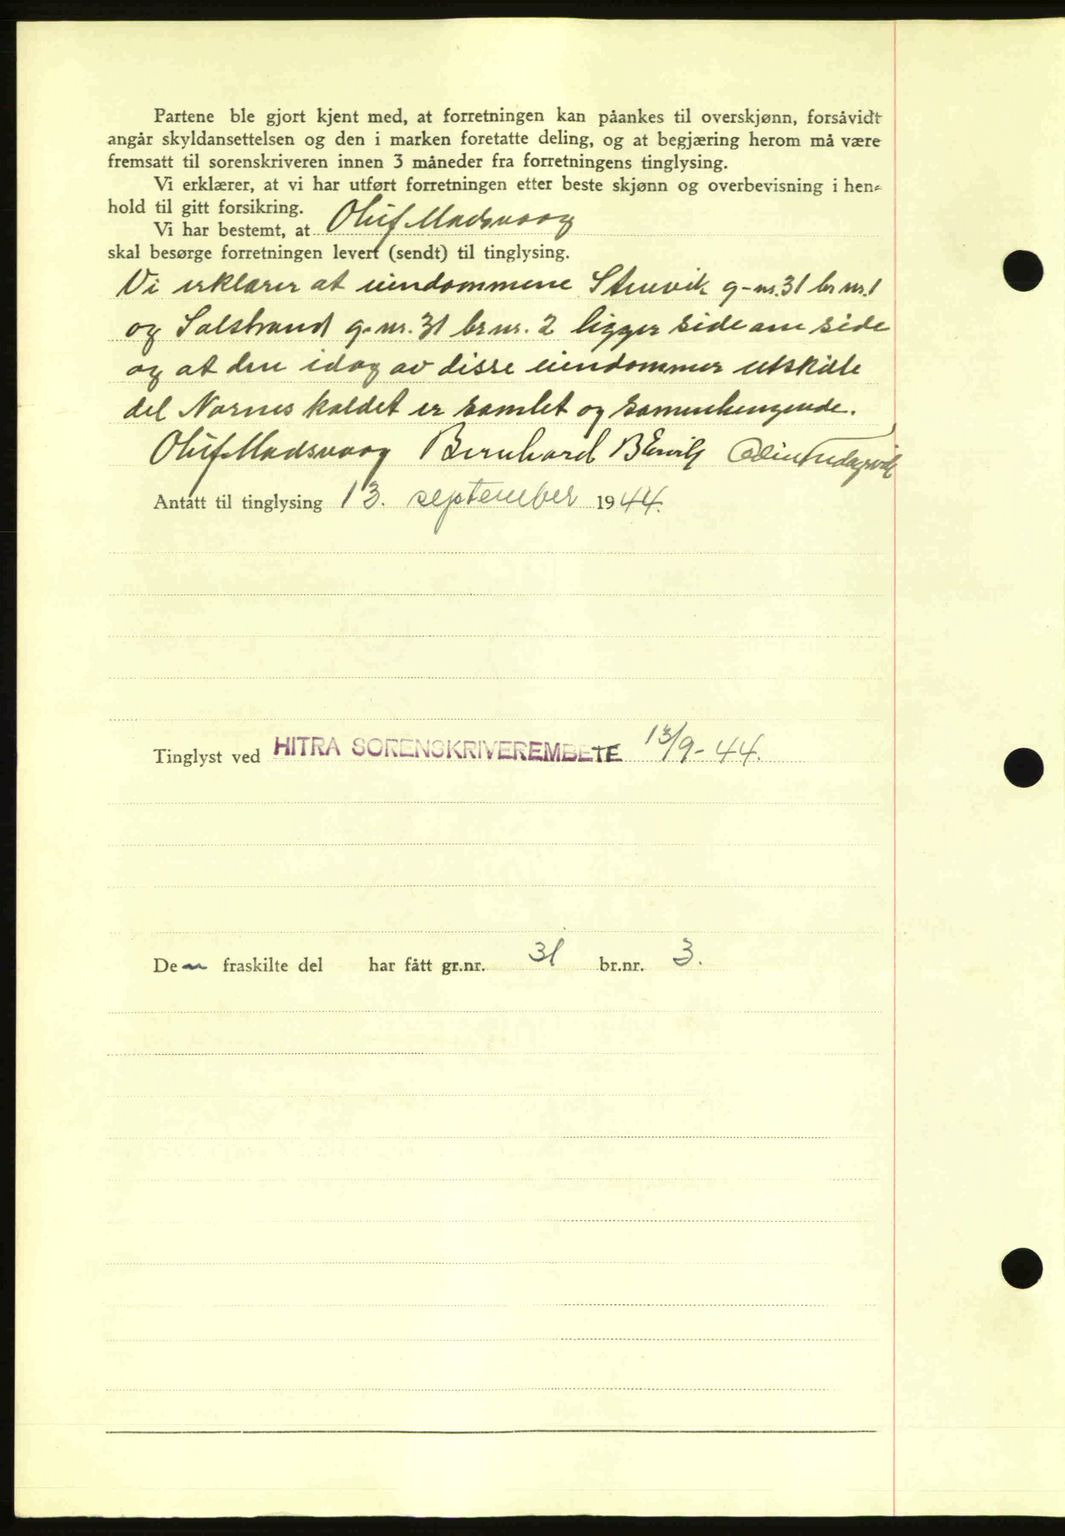 Partene ble gjort kjent med, at forretningen kan påankes til overskjønn, forsåvidt
angår skyldansettelsen og den i marken foretatte deling, og at begjæring herom må være
fremsatt til sorenskriveren innen 3 måneder fra forretningens tinglysing.
Vi erklærer, at vi har utført forretningen etter beste skjønn og overbevisning i hen-
hold til gitt forsikring.
Vi har bestemt, at Oluf Madsvaag
skal besørge forretningen levert (sendt) til tinglysing.
Vi erklærer at eiendommene g-nr. 31 br nr. 1
og Salstrand g-nr. 31 br nr. 2 ligger side om side
og at den idag av disse eiendommer utskilte
del Nornes kaldet er samlet og samenhengende.
Oluf Madsvaag Bernhard
Antatt til tinglysing 13. september 1944.
Tinglyst ved HITRA SORENSKRIVEREMBETE 13/9-44.
Den fraskilte del har fått gr.nr. 31 br.nr. 3.